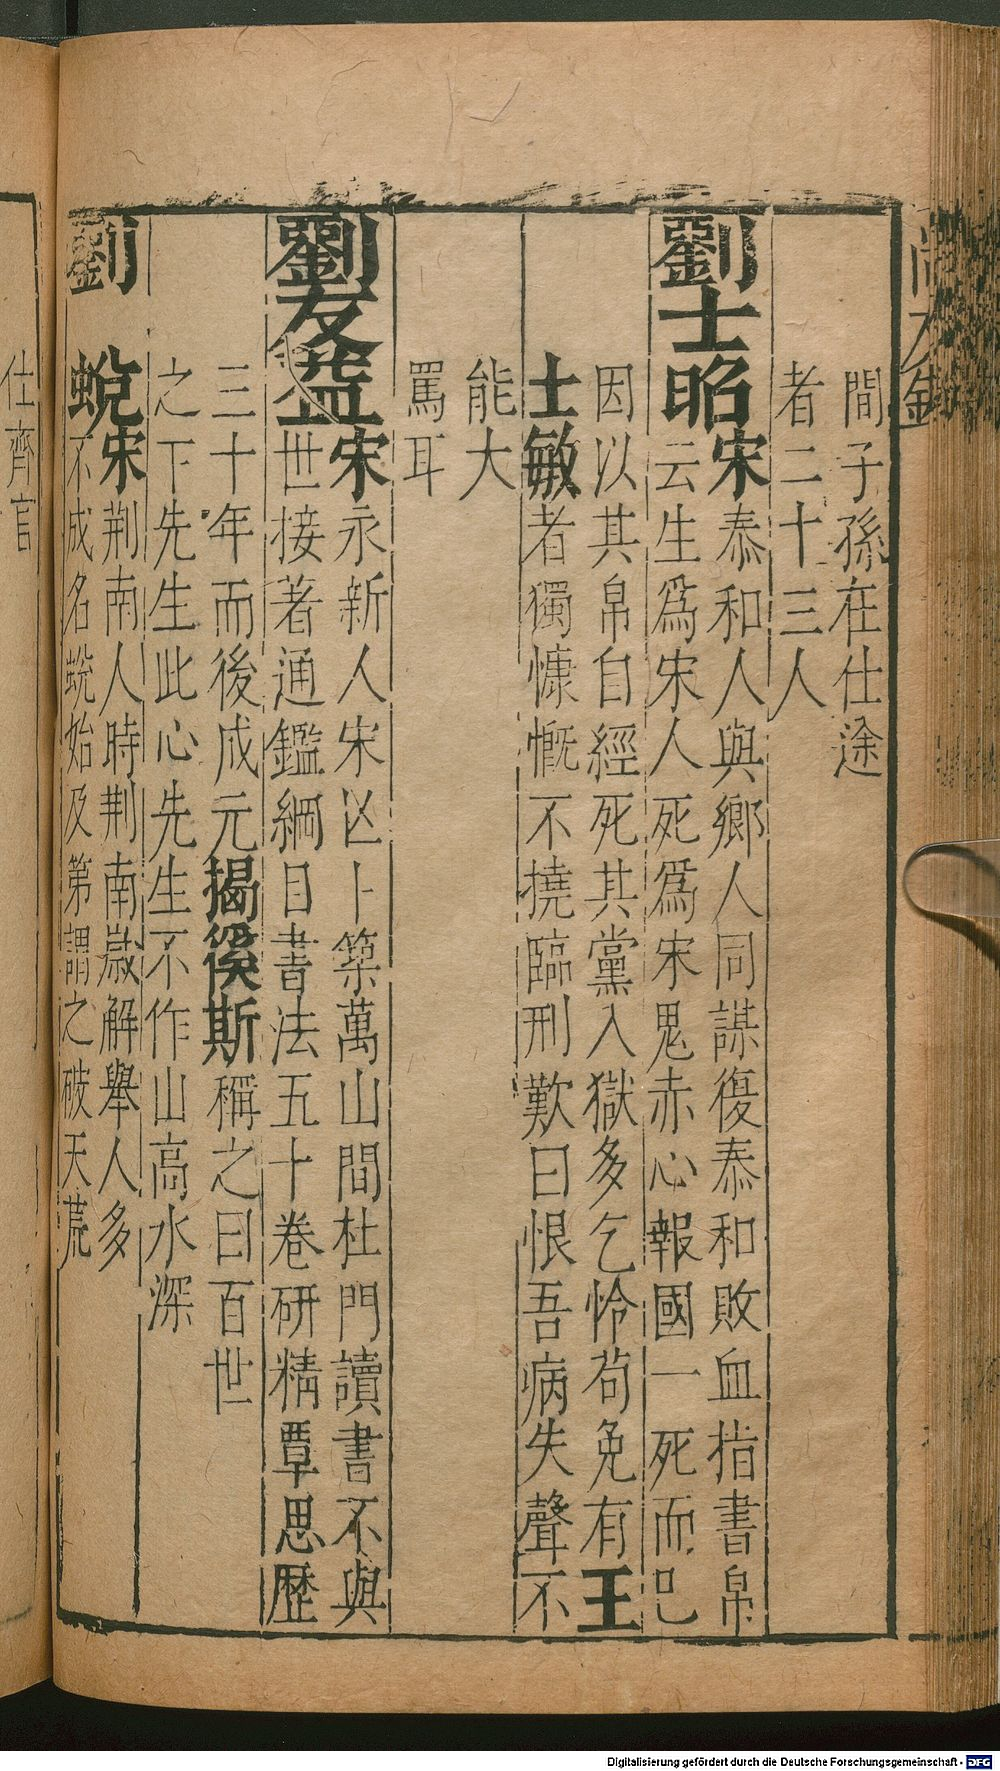 間子孫在仕途
者二十三人
劉士昭宋泰和人與鄉人同謀復泰和敗血指書帛
云生爲宋人死爲宋鬼赤心報國一死而已
因以其帛自經死其黨入獄多乞怜苟免有王
士敏者獨慷慨不撓臨刑歎曰恨吾病失聲不
能大
罵耳
劉友益宋永新人宋亾卜築萬山間杜門讀書不與
世接著通鑑綱目書法五十卷研精覃思歷
三十年而後成元揭傒斯稱之曰百世
之下先生此心先生不作山高水深
劉蛻宋荆南人時荆南嵗解舉人多
不成名蛻始及第謂之破天荒
仕齊官
Digitalisierung gefördert durch die Deutsche Forschungsgemeinschaft - DFG